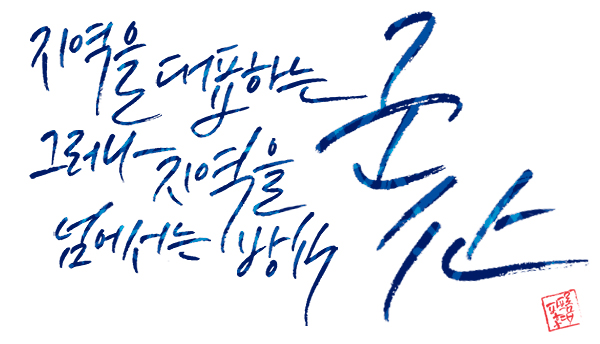 지역을 대표하는
그러나 지역을
넘어서는 방식
군산